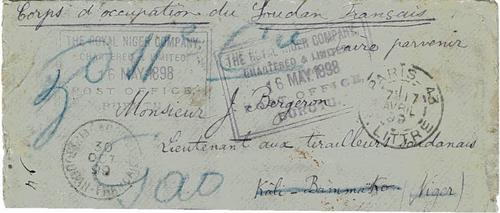 Corps d'occupation du Soudan Français
THE ROYAL NIGER COMPANY
CHARTERED & LIMITED
16 MAY 1898
POST OFFICE
THE ROYAL NIGER COMPANY
CHARTERED & LIMITED
16 MAY 1898
POST OFFICE
faire parvenir
PARIS
AVRIL
LITTRÉ
Monsieur J. Bergeron
Lieutenant aux tirailleurs soudanais
30
OCT
Gao
Kati - Bammako (Niger)